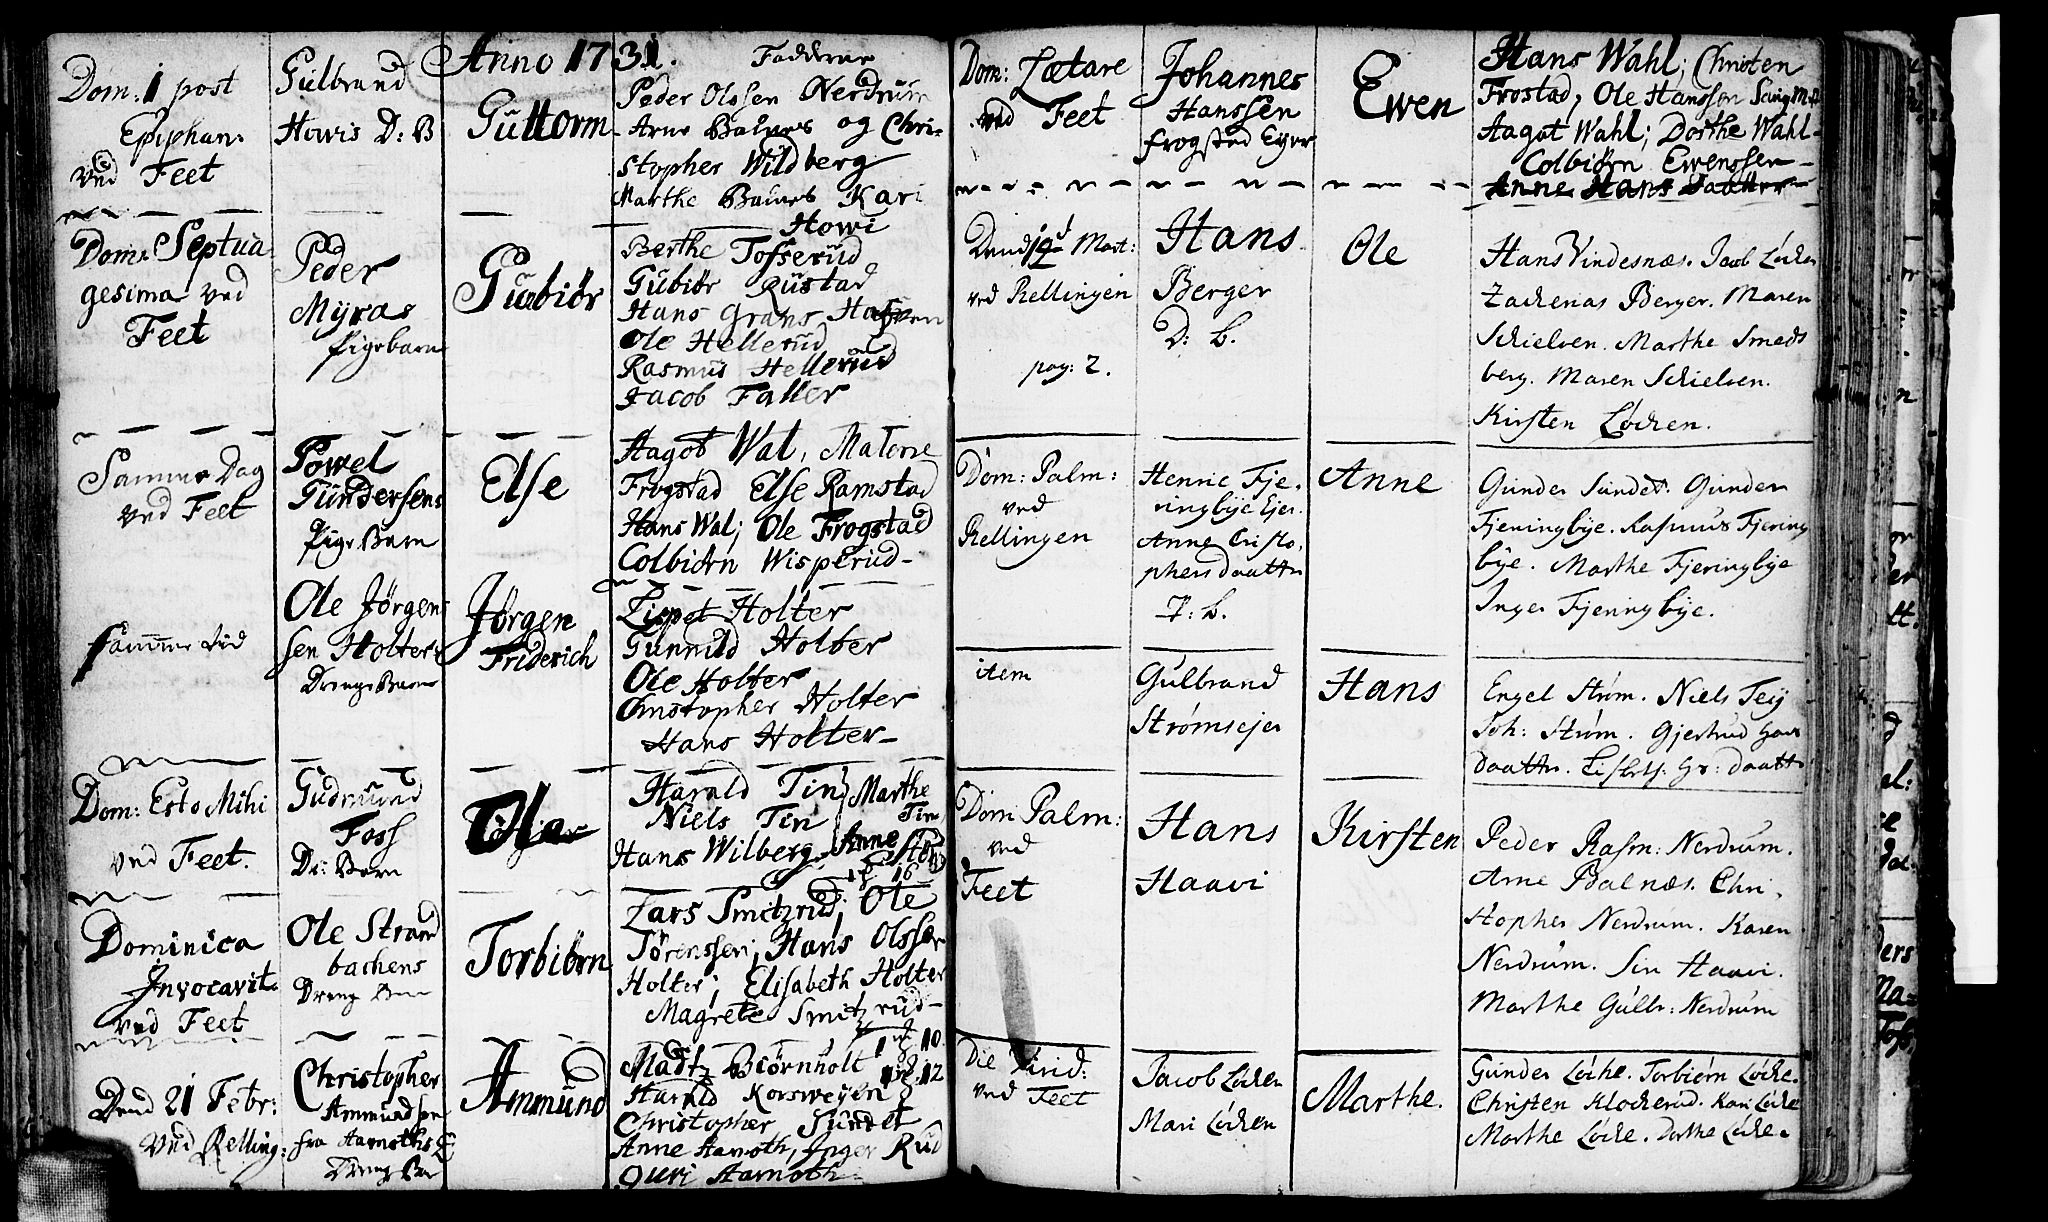 Anno 1731.
Faddere
Dom: 1 post
Epiphan:
ved Feet
Gulbrand
Howis D: B
Guttorm
Peder Olssen Nerdrum
Arne Balnes og Chri-
stopher Wildberg
Marthe Balnes Kari
Howi
Dom: Septua
gesima ved
Feet
Peder
Myras
Pigebarn
Gubiør
Berthe Tofserud
Gubiør Rustad
Hans Grans
Ole Hellerud
Rasmus Hellerud
Jacob Faller
Samme Dag
ved Feet
Powel
Gundersens
Pige Barn
Else
Aagot Wal, Malene
Frogstad Else Ramstad
Hans Wal; Ole Frogstad
Colbiørn Wisperud-
samme tid
Ole Jørgen
sen Holters
Drenge Barn
Jørgen
Friderich
Lispet Holter
Gunnild Holter
Ole Holter
Christopher Holter
Hans Holter-
Dom: Esto Mihi
ved Feet.
Gudmund
Foss
Dr: Barn
Ole
Harald Tin Marthe
Niels Tin Tin
Hans Wilberg, Anne
Dominica
Invocavit
ved Feet
Ole Strand
bachens
Dreng Barn
Torbiørn
Lars Smitzrud; Ole
Torenssen; Hans Olssen
Holter; Elisabeth Holter
Magrete Smitzrud-
Dend 21 Febr:
ved Relling:
Christopher
Ammundsen
fra Aarnoths E
Dreng Bar
Ammund
Madtz Biørnholt
Harald Korsweyen
Christopher Sundet
Anne Aarnoth, Inger Rud
Guri Aarnoth-
Dom: Lætare
ved Feet
Johannes
Hanssen
frogstad Eyer
Ewen
Hans Wahl; Christen
Frostad, Ole Hansson
Aagot Wahl; Dorthe Wahl-
Colbiørn Ewenssen-
Anne Hans Daatter
Dend 19d Mart:
ved Rellingen
pag: 2.
Hans
Berger
D: b.
Ole
Hans Vindesnæs. Jacob Løcken
Zacherias Berger. Maren
Schielven. Marthe Smeds
berg. Maren Schielven.
Kirsten Løcken.
Dom: Palm:
ved
Rellingen
Henric Fje-
ringbye Ejer.
Anne Cristo-
phersdaatter
P: b.
Anne
Gunder Sundet. Gunder
Fjeringbye. Rasmus Fjering
bye. Marthe Fjeringbye
Inger Fjeringbye.
item
Gulbrand
Strømsejer
Hans
Engel Strøm. Niels Teij
Joh: Strøm. Gjertrud
daatter. Lisbeth. Gr: daatter
Dom: Palm:
ved
Feet
Hans
Haavi
Kirsten
Peder Rasm: Nerdrum.
Arne Balnæs. Chri-
stopher Nerdrum. Karen
Nerdrum. Siri Haavi.
Marthe Gulbr: Nerdrum
Die Virid:
ved Feet
Jacob Løcken
Mari Løcken
Marthe.
Gunder Løcke. Torbiørn Løcke.
Christen Klockerud. Kari Løcke
Marthe Løcke. Dorthe Løcke.